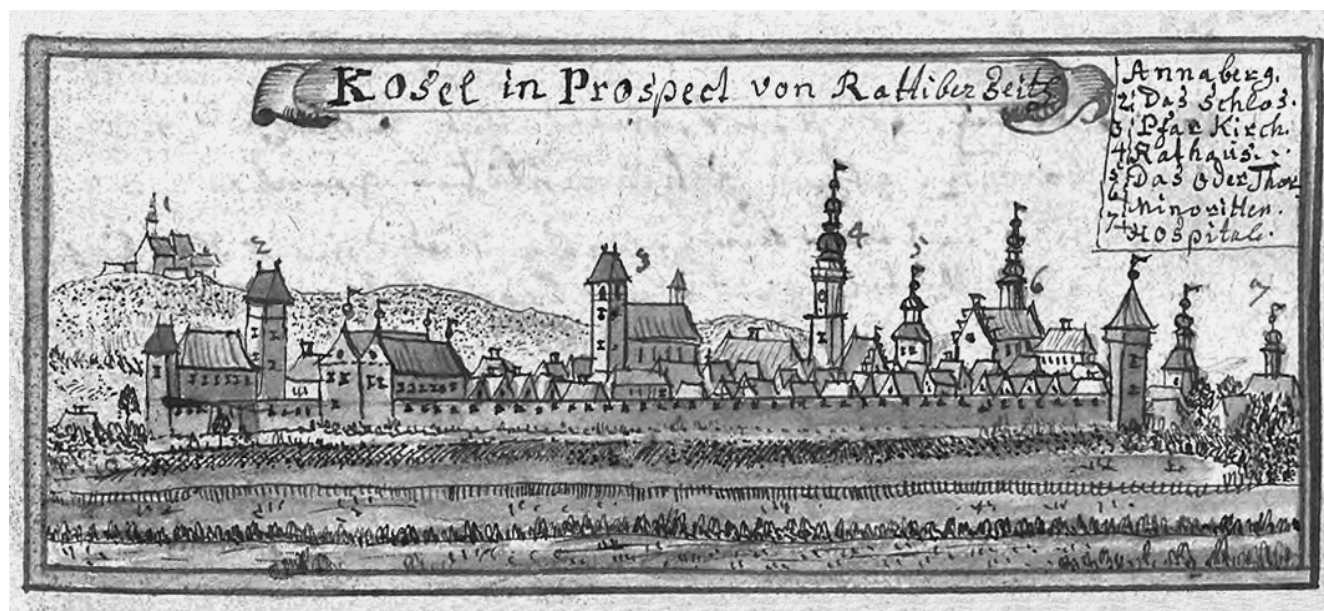 Kosel in Prospect von Rattiber Seite
Annaberg.
2. Das Schlos.
3. Pfar Kirch.
4. Rathaus.
5. Das Oder Thor
6. Minoritten.
7. Hospital.
1
2
3
4
5
6
7